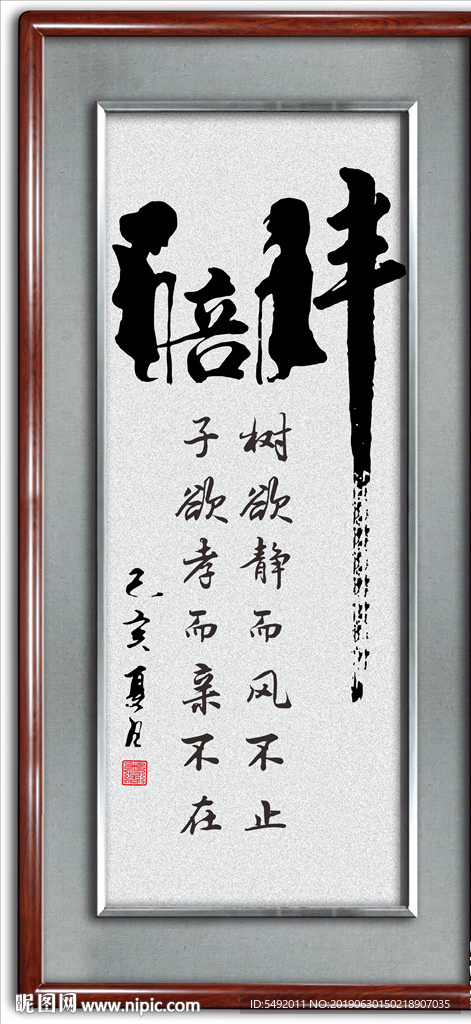 陪伴
树欲静而风不止
子欲孝而亲不在
己亥夏月
昵图网 www.nipic.com
ID:5492011 NO:20190630150218907035